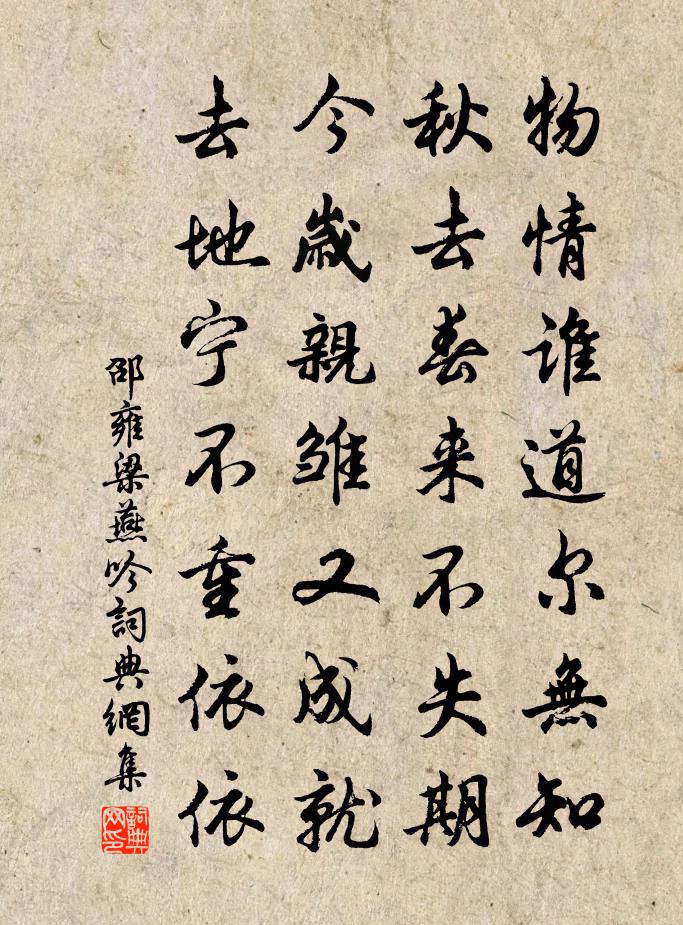 物情誰道尔無知
秋去春来不失期
今歲親雛又成就
去地宁不重依依
邵雍梁燕吟詞典網集
詞典网印